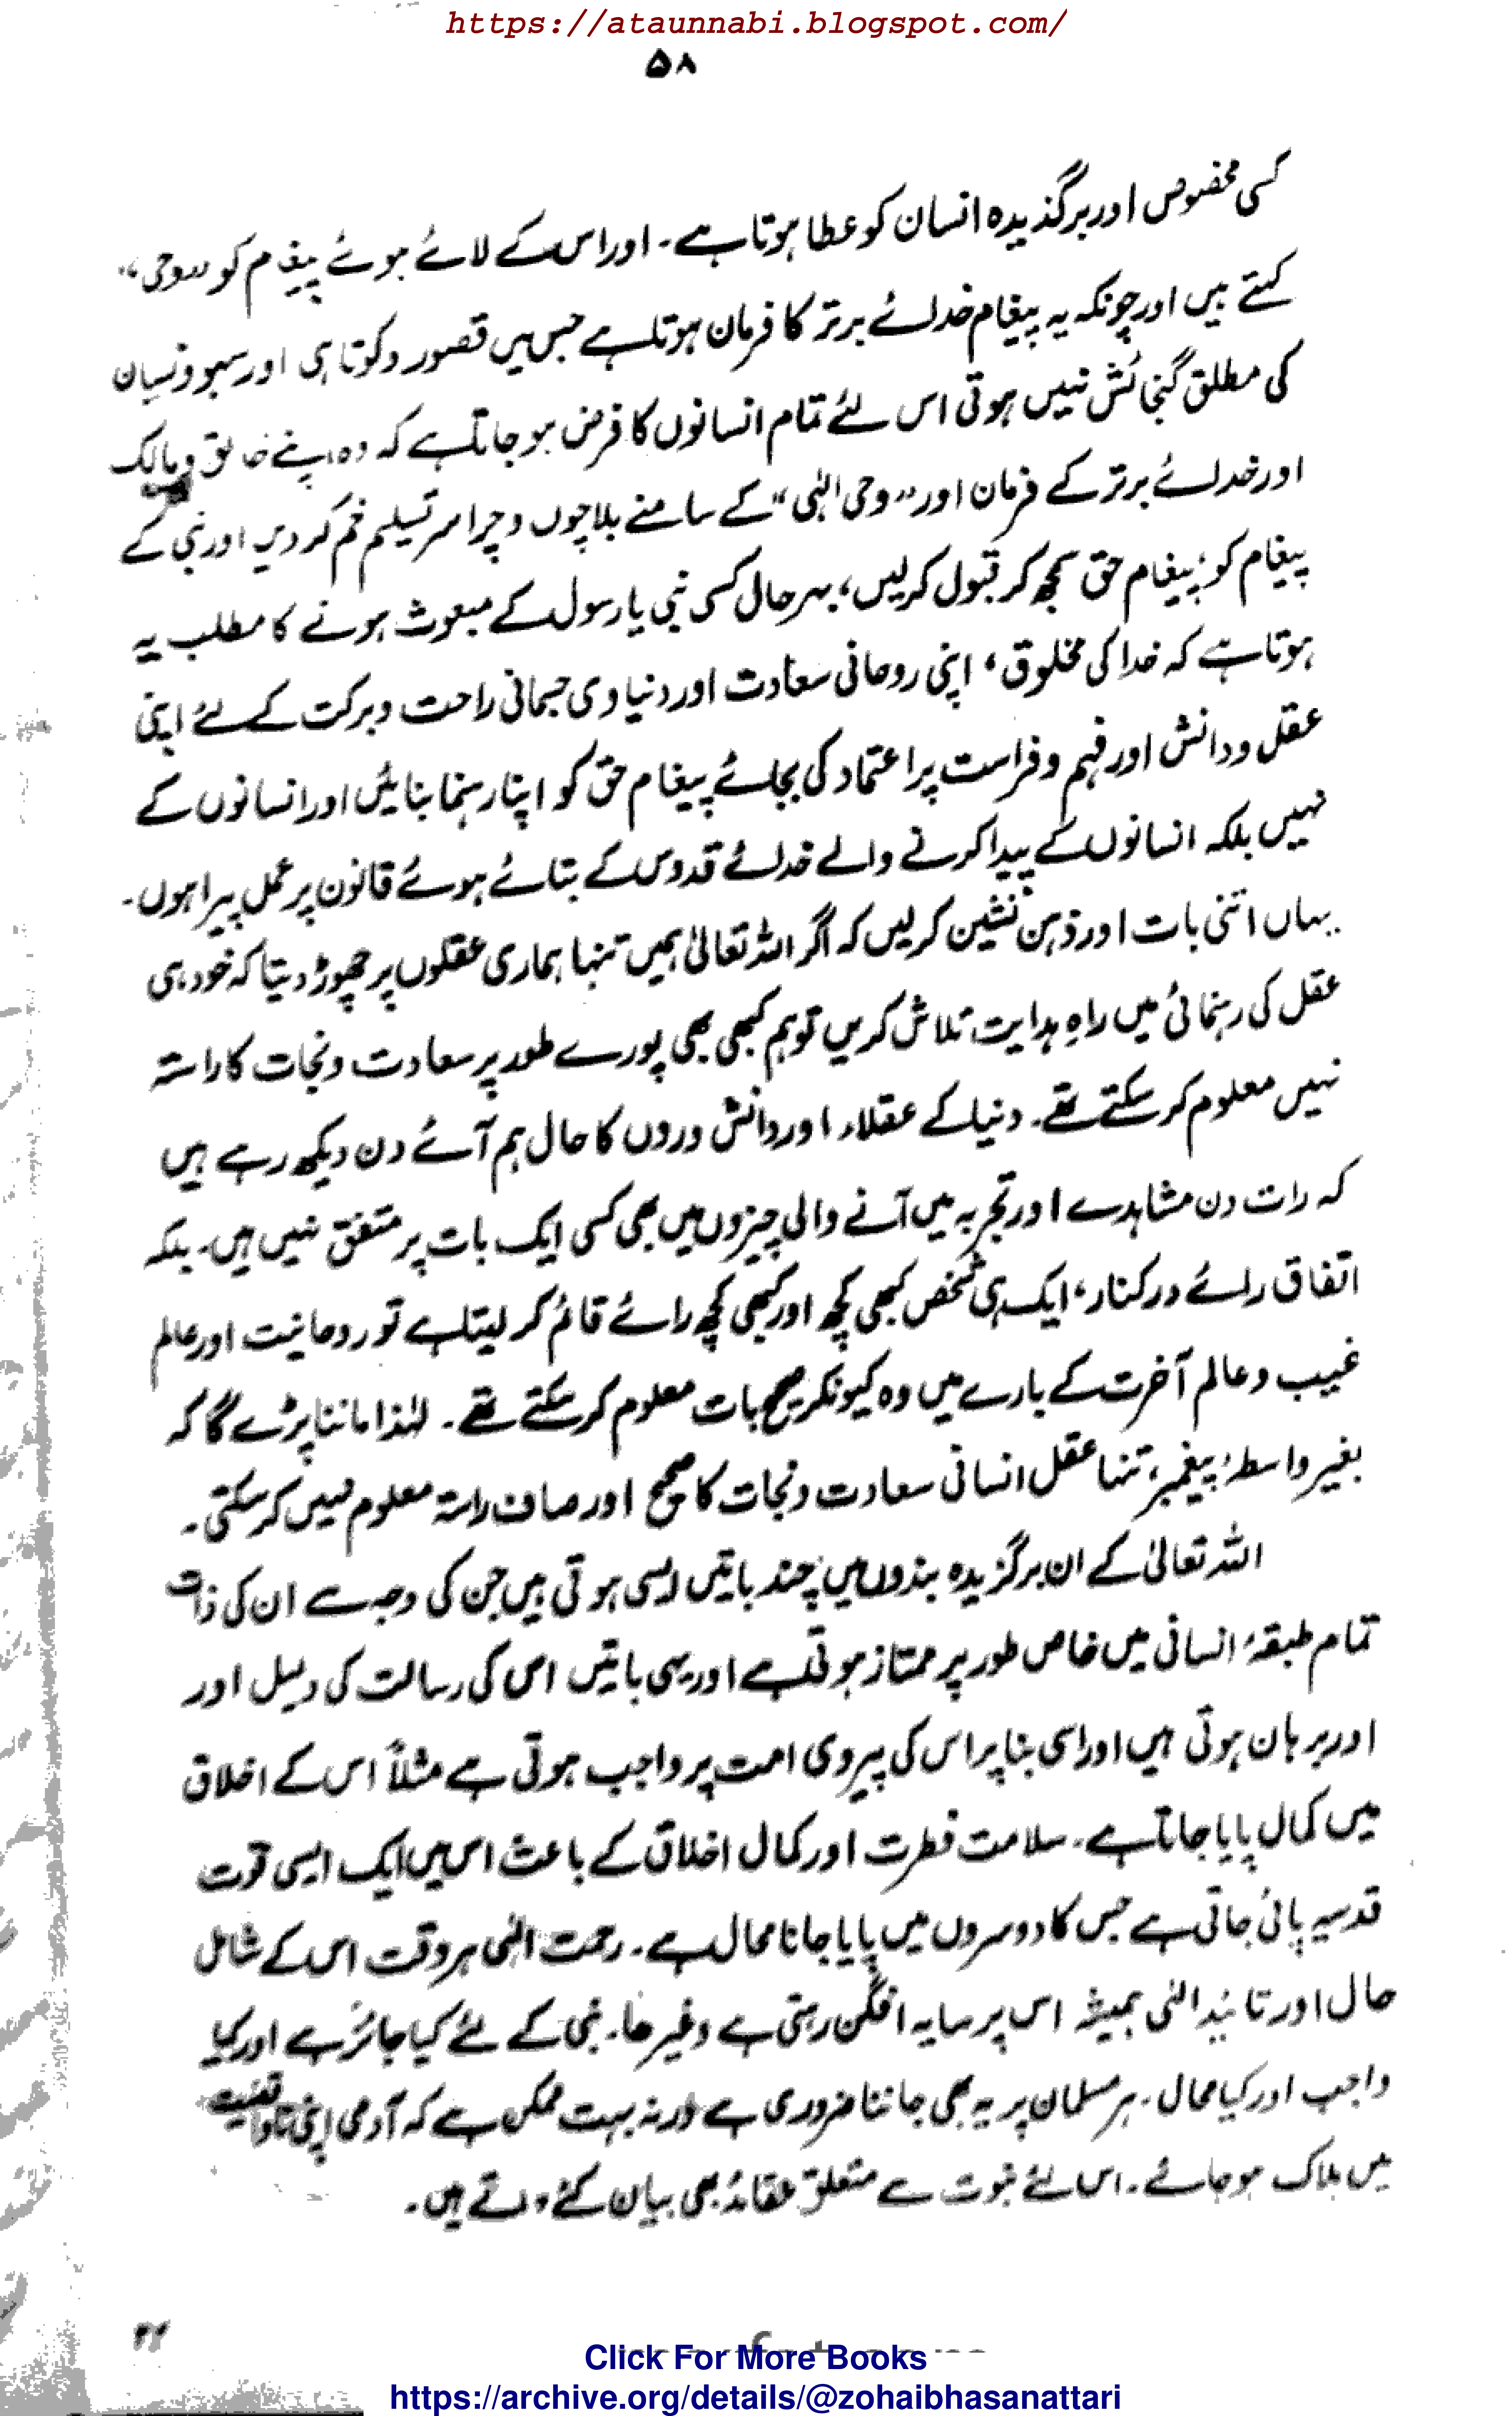 https://ataunnabi.blogspot.com/
۵۸
کسی مخصوص اور برگذیدہ انسان کو عطا ہوتا ہے۔ اور اس کے لائے ہوئے پیغام کو "وحی"
کہتے ہیں اور چونکہ یہ پیغام خدائے برتر کا فرمان ہوتا ہے جس میں قصور و کوتاہی اور سہو و نسیان
کی مطلق گنجائش نہیں ہوتی اس لئے تمام انسانوں کا فرض ہو جاتا ہے کہ وہ اپنے خالق و مالک
اور خدائے برتر کے فرمان اور "وحی الہٰی" کے سامنے بلا چوں و چرا سر تسلیم خم کر دیں اور نبی کے
پیغام کو، پیغام حق سمجھ کر قبول کرلیں، بہرحال کسی نبی یا رسول کے مبعوث ہونے کا مطلب یہ
ہوتا ہے کہ خدا کی مخلوق، اپنی روحانی سعادت اور دنیاوی جسمانی راحت و برکت کے لئے اپنی
عقل و دانش اور فہم و فراست پر اعتماد کی بجائے پیغام حق کو اپنا رہنما بنائیں اور انسانوں کے
نہیں بلکہ انسانوں کے پیدا کرنے والے خدائے قدوس کے بتائے ہوئے قانون پر عمل پیرا ہوں۔
یہاں اتنی بات اور ذہن نشین کرلیں کہ اگر اللہ تعالیٰ ہمیں تنہا ہماری عقلوں پر چھوڑ دیتا کہ خود ہی
عقل کی رہنمائی میں راہِ ہدایت تلاش کریں تو ہم کبھی بھی پورے طور پر سعادت و نجات کا راستہ
نہیں معلوم کر سکتے تھے۔ دنیا کے عقلاء اور دانش وروں کا حال ہم آئے دن دیکھ رہے ہیں
کہ رات دن مشاہدے اور تجربہ میں آنے والی چیزوں میں بھی کسی ایک بات پر متفق نہیں ہیں۔ بلکہ
اتفاق رائے درکنار، ایک ہی شخص کبھی کچھ اور کبھی کچھ رائے قائم کر لیتا ہے تو روحانیت اور عالم
غیب و عالم آخرت کے بارے میں وہ کیونکر صحیح بات معلوم کر سکتے تھے۔ لہٰذا ماننا پڑے گا کہ
بغیر واسطۂ پیغمبر، تنہا عقل انسانی سعادت و نجات کا صحیح اور صاف راستہ معلوم نہیں کر سکتی۔
اللہ تعالیٰ کے ان برگزیدہ بندوں میں چند باتیں ایسی ہوتی ہیں جن کی وجہ سے ان کی ذات
تمام طبقۂ انسانی میں خاص طور پر ممتاز ہوتی ہے اور یہی باتیں اس کی رسالت کی دلیل اور
اور برہان ہوتی ہیں اور اسی بنا پر اس کی پیروی امت پر واجب ہوتی ہے مثلاً اس کے اخلاق
میں کمال پایا جاتا ہے۔ سلامت فطرت اور کمال اخلاق کے باعث اس میں ایک ایسی قوت
قدسیہ پائی جاتی ہے جس کا دوسروں میں پایا جانا محال ہے۔ رحمت الٰہی ہر وقت اس کے شامل
حال اور تائید الٰہی ہمیشہ اس پر سایہ افگن رہتی ہے وغیرھا۔ نبی کے لئے کیا جائز ہے اور کیا
واجب اور کیا محال۔ ہر مسلمان پر یہ بھی جاننا ضروری ہے ورنہ بہت ممکن ہے کہ آدمی اپنی ناواقفیت
میں ہلاک ہو جائے۔ اس لئے نبوت سے متعلق عقائد بھی بیان کئے دیتے ہیں۔
Click For More Books
https://archive.org/details/@zohaibhasanattari